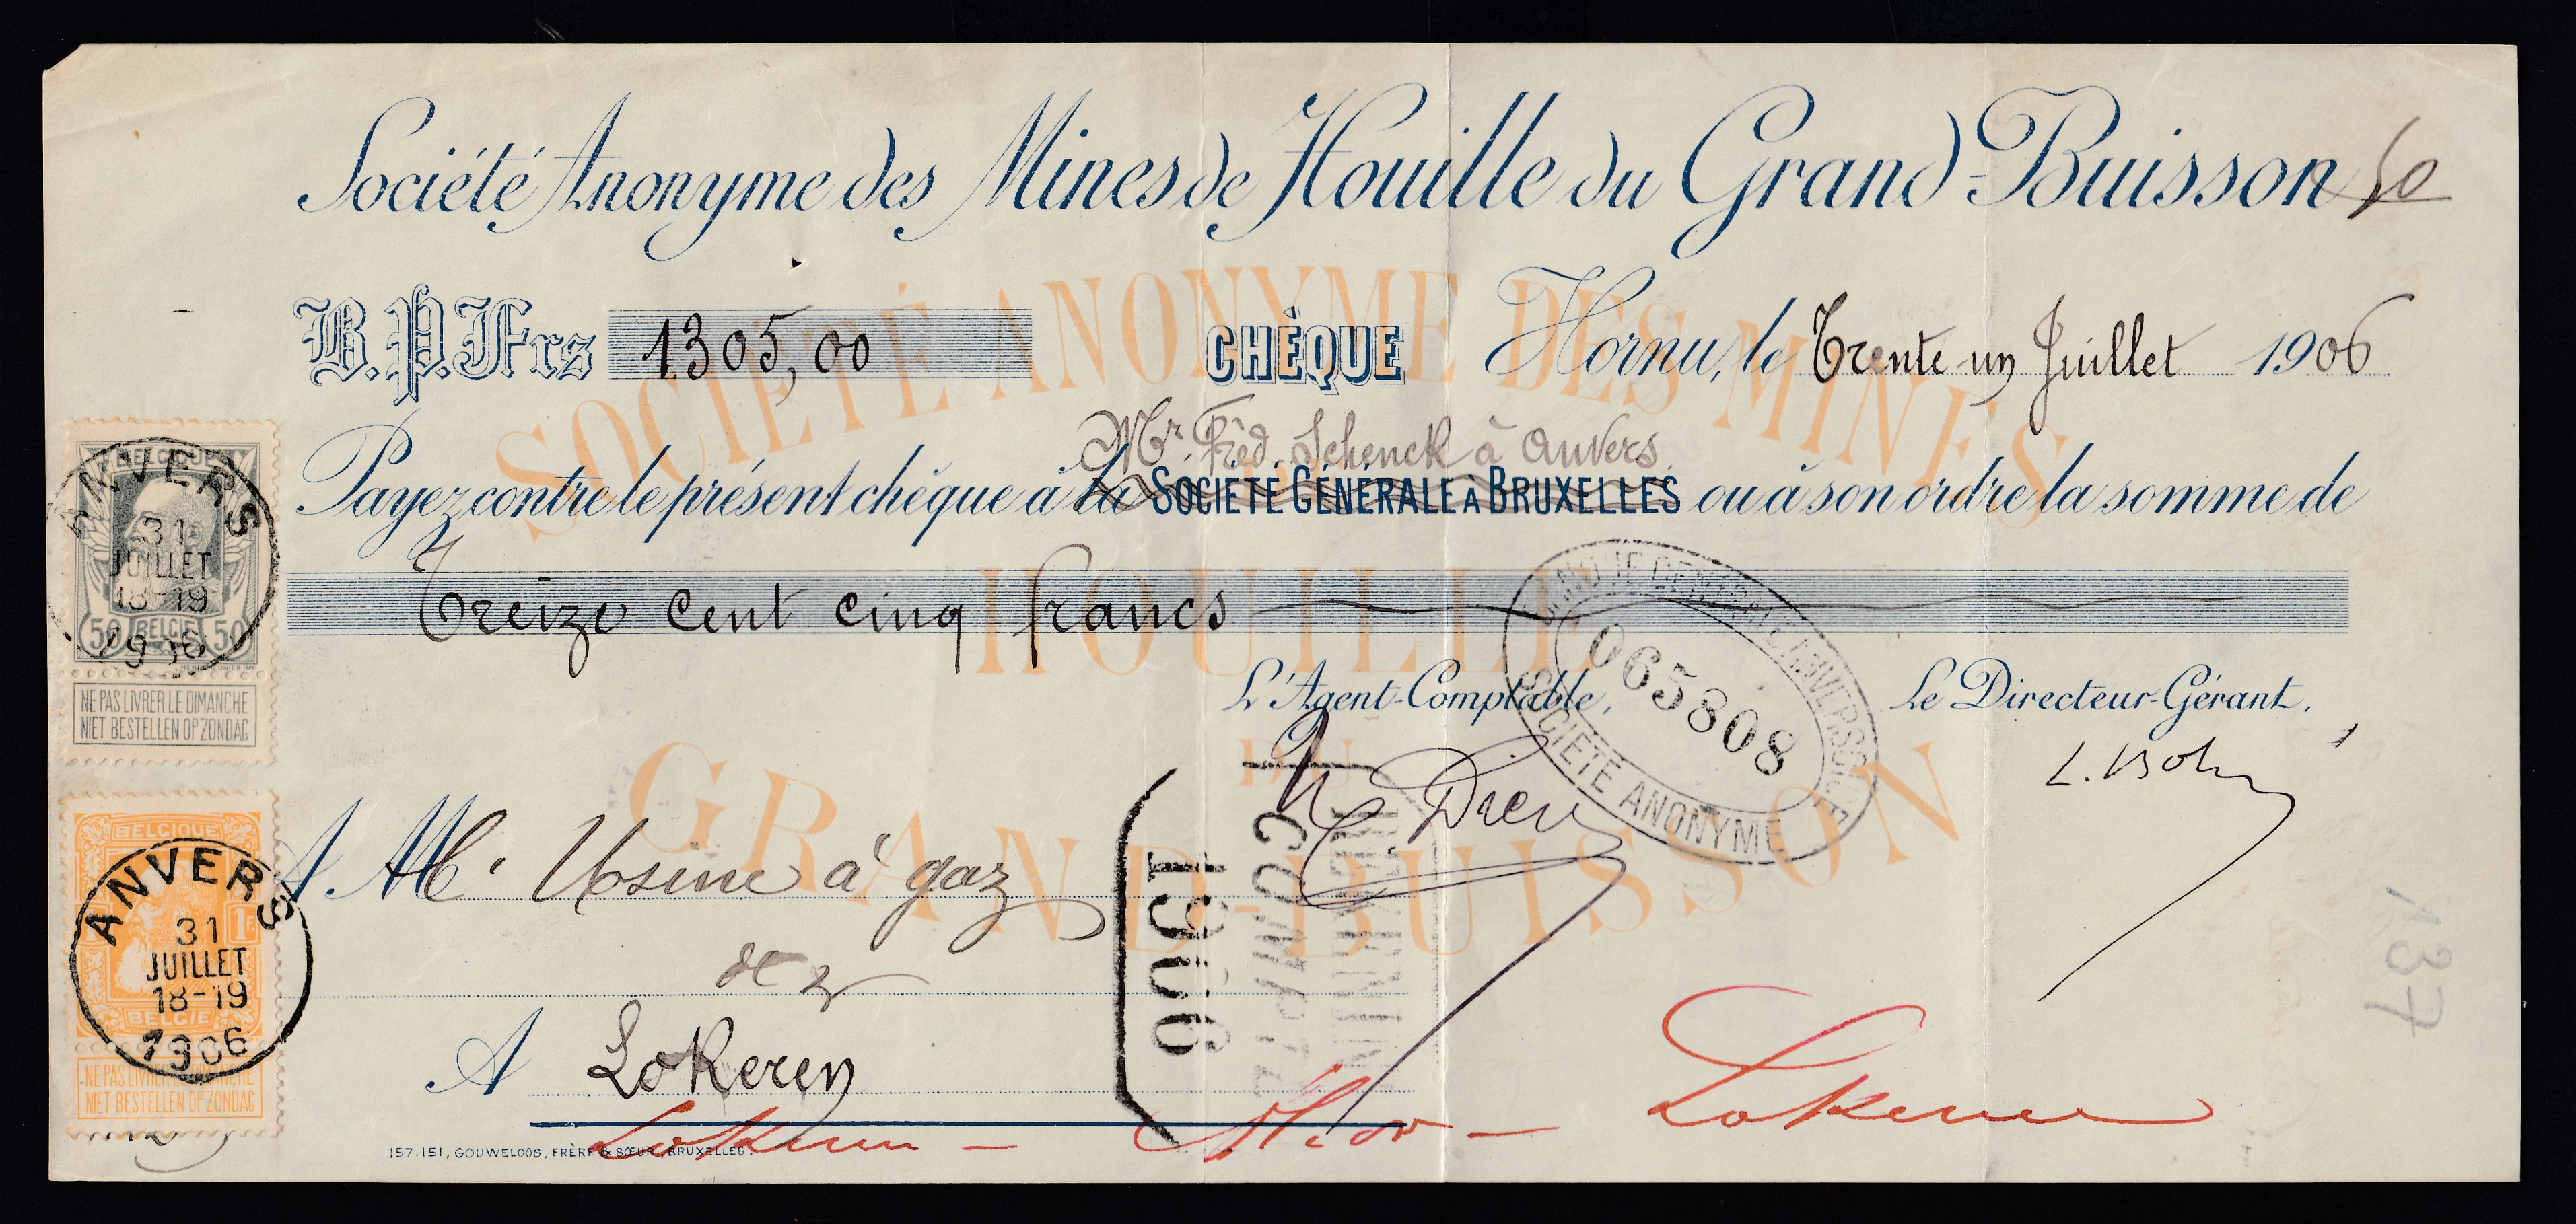 Société Anonyme des Mines de Houille du Grand-Buisson
50
B.P.Frs 1305,00 CHÈQUE Hornu, le Trente-un Juillet 1906
Mr. Fréd. Schenck à Anvers.
Payez contre le présent chèque à la SOCIÉTÉ GÉNÉRALE À BRUXELLES ou à son ordre la somme de
Treize cent cinq francs
L'Agent-Comptable, Le Directeur-Gérant,
A M. Usine à gaz
de
A Lokeren
Lokeren
Lokeren
157.151, GOUWELOOS, FRÈRE & SŒUR, BRUXELLES.
SOCIÉTÉ ANONYME DES MINES
DE
HOUILLE
DU
GRAND-BUISSON
BANQUE CENTRALE ANVERSOISE
065808
SOCIÉTÉ ANONYME
1906
137
BELGIQUE
ANVERS
31
JUILLET
18-19
1906
50 BELGIE 50
NE PAS LIVRER LE DIMANCHE
NIET BESTELLEN OP ZONDAG
BELGIQUE
ANVERS
31
JUILLET
18-19
BELGIE
1906
NE PAS LIVRER LE DIMANCHE
NIET BESTELLEN OP ZONDAG